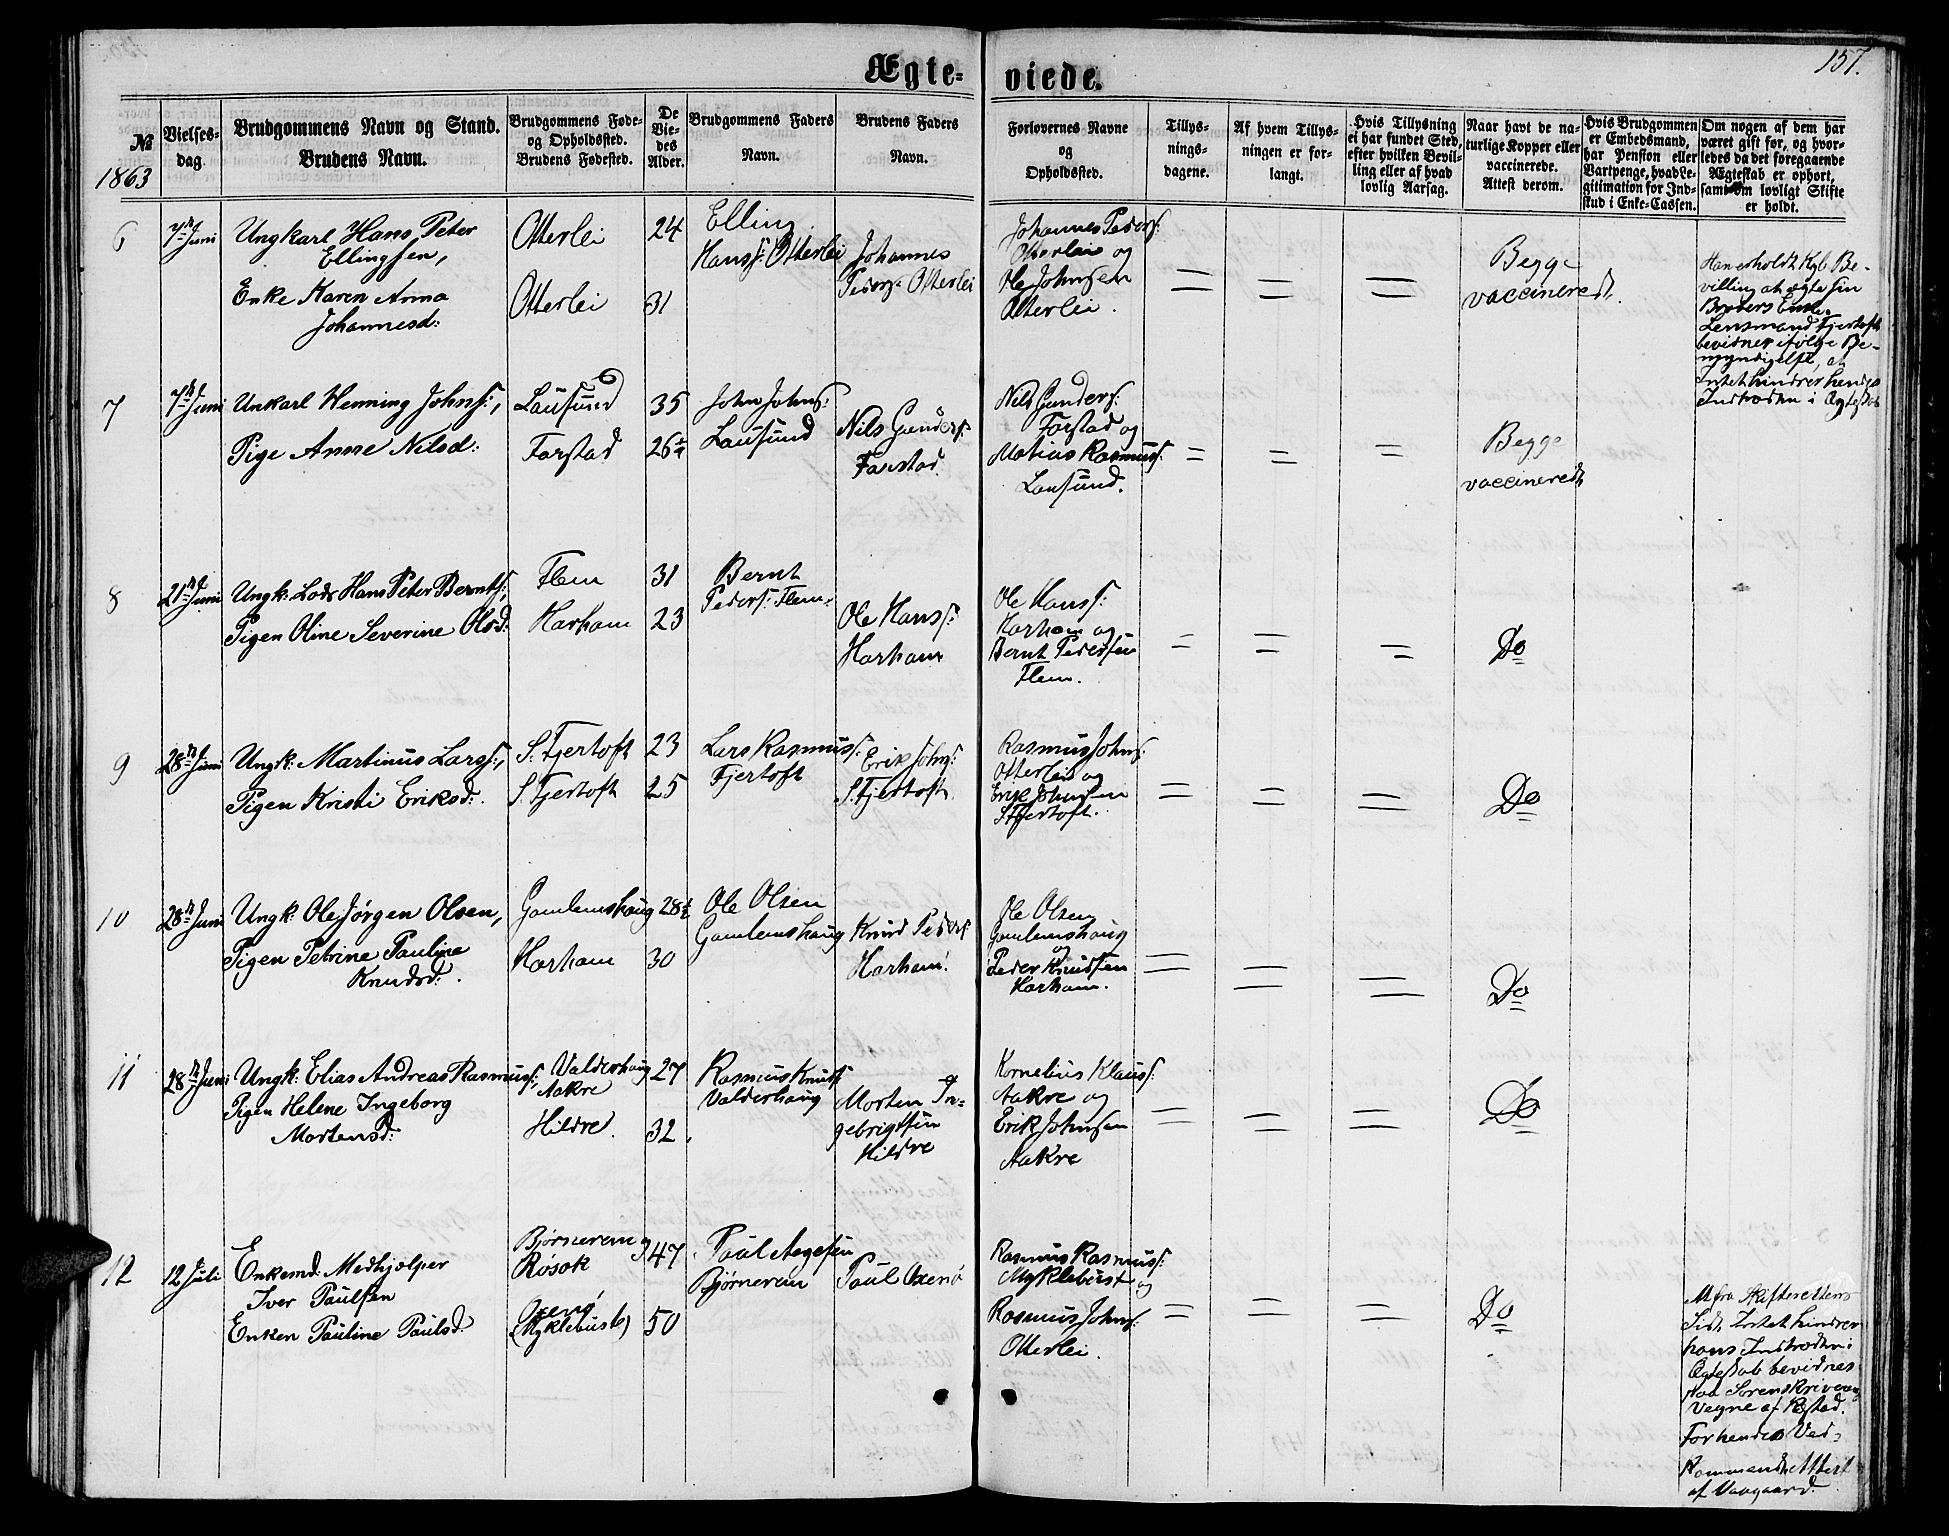 157.
Ægte-
viede.
№
1863
Vielses-
dag.
Brudgommens Navn og Stand.
Brudens Navn.
Brudgommens Føde-
og Opholdssted.
Brudens Fødested.
De
Vie-
des
Alder.
Brudgommens Faders
Navn.
Brudens Faders
Navn.
Forlovernes Navne
og
Opholdssted.
Tillys-
nings-
dagene.
Af hvem Tillys-
ningen er for-
langt.
Hvis Tillysning
ei har fundet Sted,
efter hvilken Bevil-
ling eller af hvad
lovlig Aarsag.
Naar havt de na-
turlige Kopper eller
vaccinerede.
Attest derom.
Hvis Brudgommen
er Embedsmand,
har Pension eller
Vartpenge, hvad Le-
gitimation for Ind-
skud i Enke-Cassen.
Om nogen af dem har
været gift før, og hvor-
ledes da det foregaaende
Ægteskab er ophørt,
samt om lovligt Skifte
er holdt.
6
7de Juni
Ungkarl Hans Peter
Ellingsen,
Enke Karen Anna
Johannesd:
Otterlei
Otterlei
24
31
Elling
Hanss: Otterlei
Johannes
Peders: Otterlei
Johannes Peders:
Otterlei og
Ole Johnsen
Otterlei.
=
=
=
Begge
vaccinerede.
Han erholdt Kgl. Be-
villing at ægte sin
Broders Enke.
Lensmand Fjertoft
bevidner ifølge Be-
myndigelse, at
Intet hindrer hendes
Indtræden i Ægteskab
7
7de Juni
Unkarl Henning Johns:,
Pige Anne Nilsd:
Lausund
Farstad
35
26½
John Johns:
Lausund
Nils Gunders:
Farstad.
Nils Gunders:
Farstad og
Matius Rasmuss:
Lausund.
=
=
=
Begge
vaccinerede
8
21de Juni
Ungk: Lods Hans Peter Bernts:,
Pigen Oline Severine Olsd:
Flem
Harham
31
23
Bernt
Peders: Flem.
Ole Hanss:
Harham
Ole Hanss:
Harham og
Bernt Pedersen
Flem.
=
=
=
Do
9
28de Juni
Ungk: Martinus Larss:,
Pigen Kristi Eriksd:
S. Fjertoft
S. Fjertoft
23
25
Lars Rasmuss:
Fjertoft
Erik Johns:
S. Fjertoft
Rasmus Johns:
Otterlei og
Erik Johnsen
S. Fjertoft.
=
=
=
Do
10
28de Juni
Ungk: Ole Jørgen Olsen,
Pigen Petrine Pauline
Knudsd:
Gamlemshaug
Harham
28½
30
Ole Olsen
Gamlemshaug
Knud Peders:
Harham.
Ole Olsen
Gamlemshaug
og
Peder Knudsen
Harham.
=
=
=
Do
11
28de Juni
Ungk: Elias Andreas Rasmuss:,
Pigen Helene Ingeborg
Mortensd:
Valderhaug
Aakre
Hildre.
27
32.
Rasmus Knuts:
Valderhaug
Morten In-
gebrigtsen
Hildre
Kornelius Klauss:
Aakre og
Erik Johnsen
Aakre
=
=
=
Do
12
12 Juli
Enkemd: Medhjælper
Iver Paulsen
Enken Pauline Paulsd:
Bjørnerem og
Røsok
Oxenø
(Myklebust)
47
50
Paul Aagesen
Bjørnerem
Paul Oxenø
Rasmus Rasmuss:
Myklebust og
Rasmus Johns:
Otterlei.
=
=
=
Do
At fra Skifterettens
Side Intet hindrer
hans Indtræden i
Ægteskab bevidnes
paa Sorenskriverens
Vegne af Røstad.
For hendes Ved-
kommende Attest
af Vaagaard.